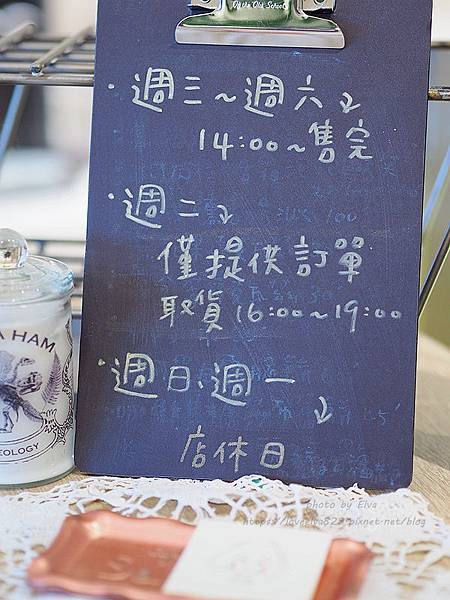 Of the Old School
·週三～週六↴
14:00～售完
·週二↴
僅提供訂單
取貨16:00～19:00
·週日、週一
↓
店休日
A HAM
EOLOGY
Photo by Elva